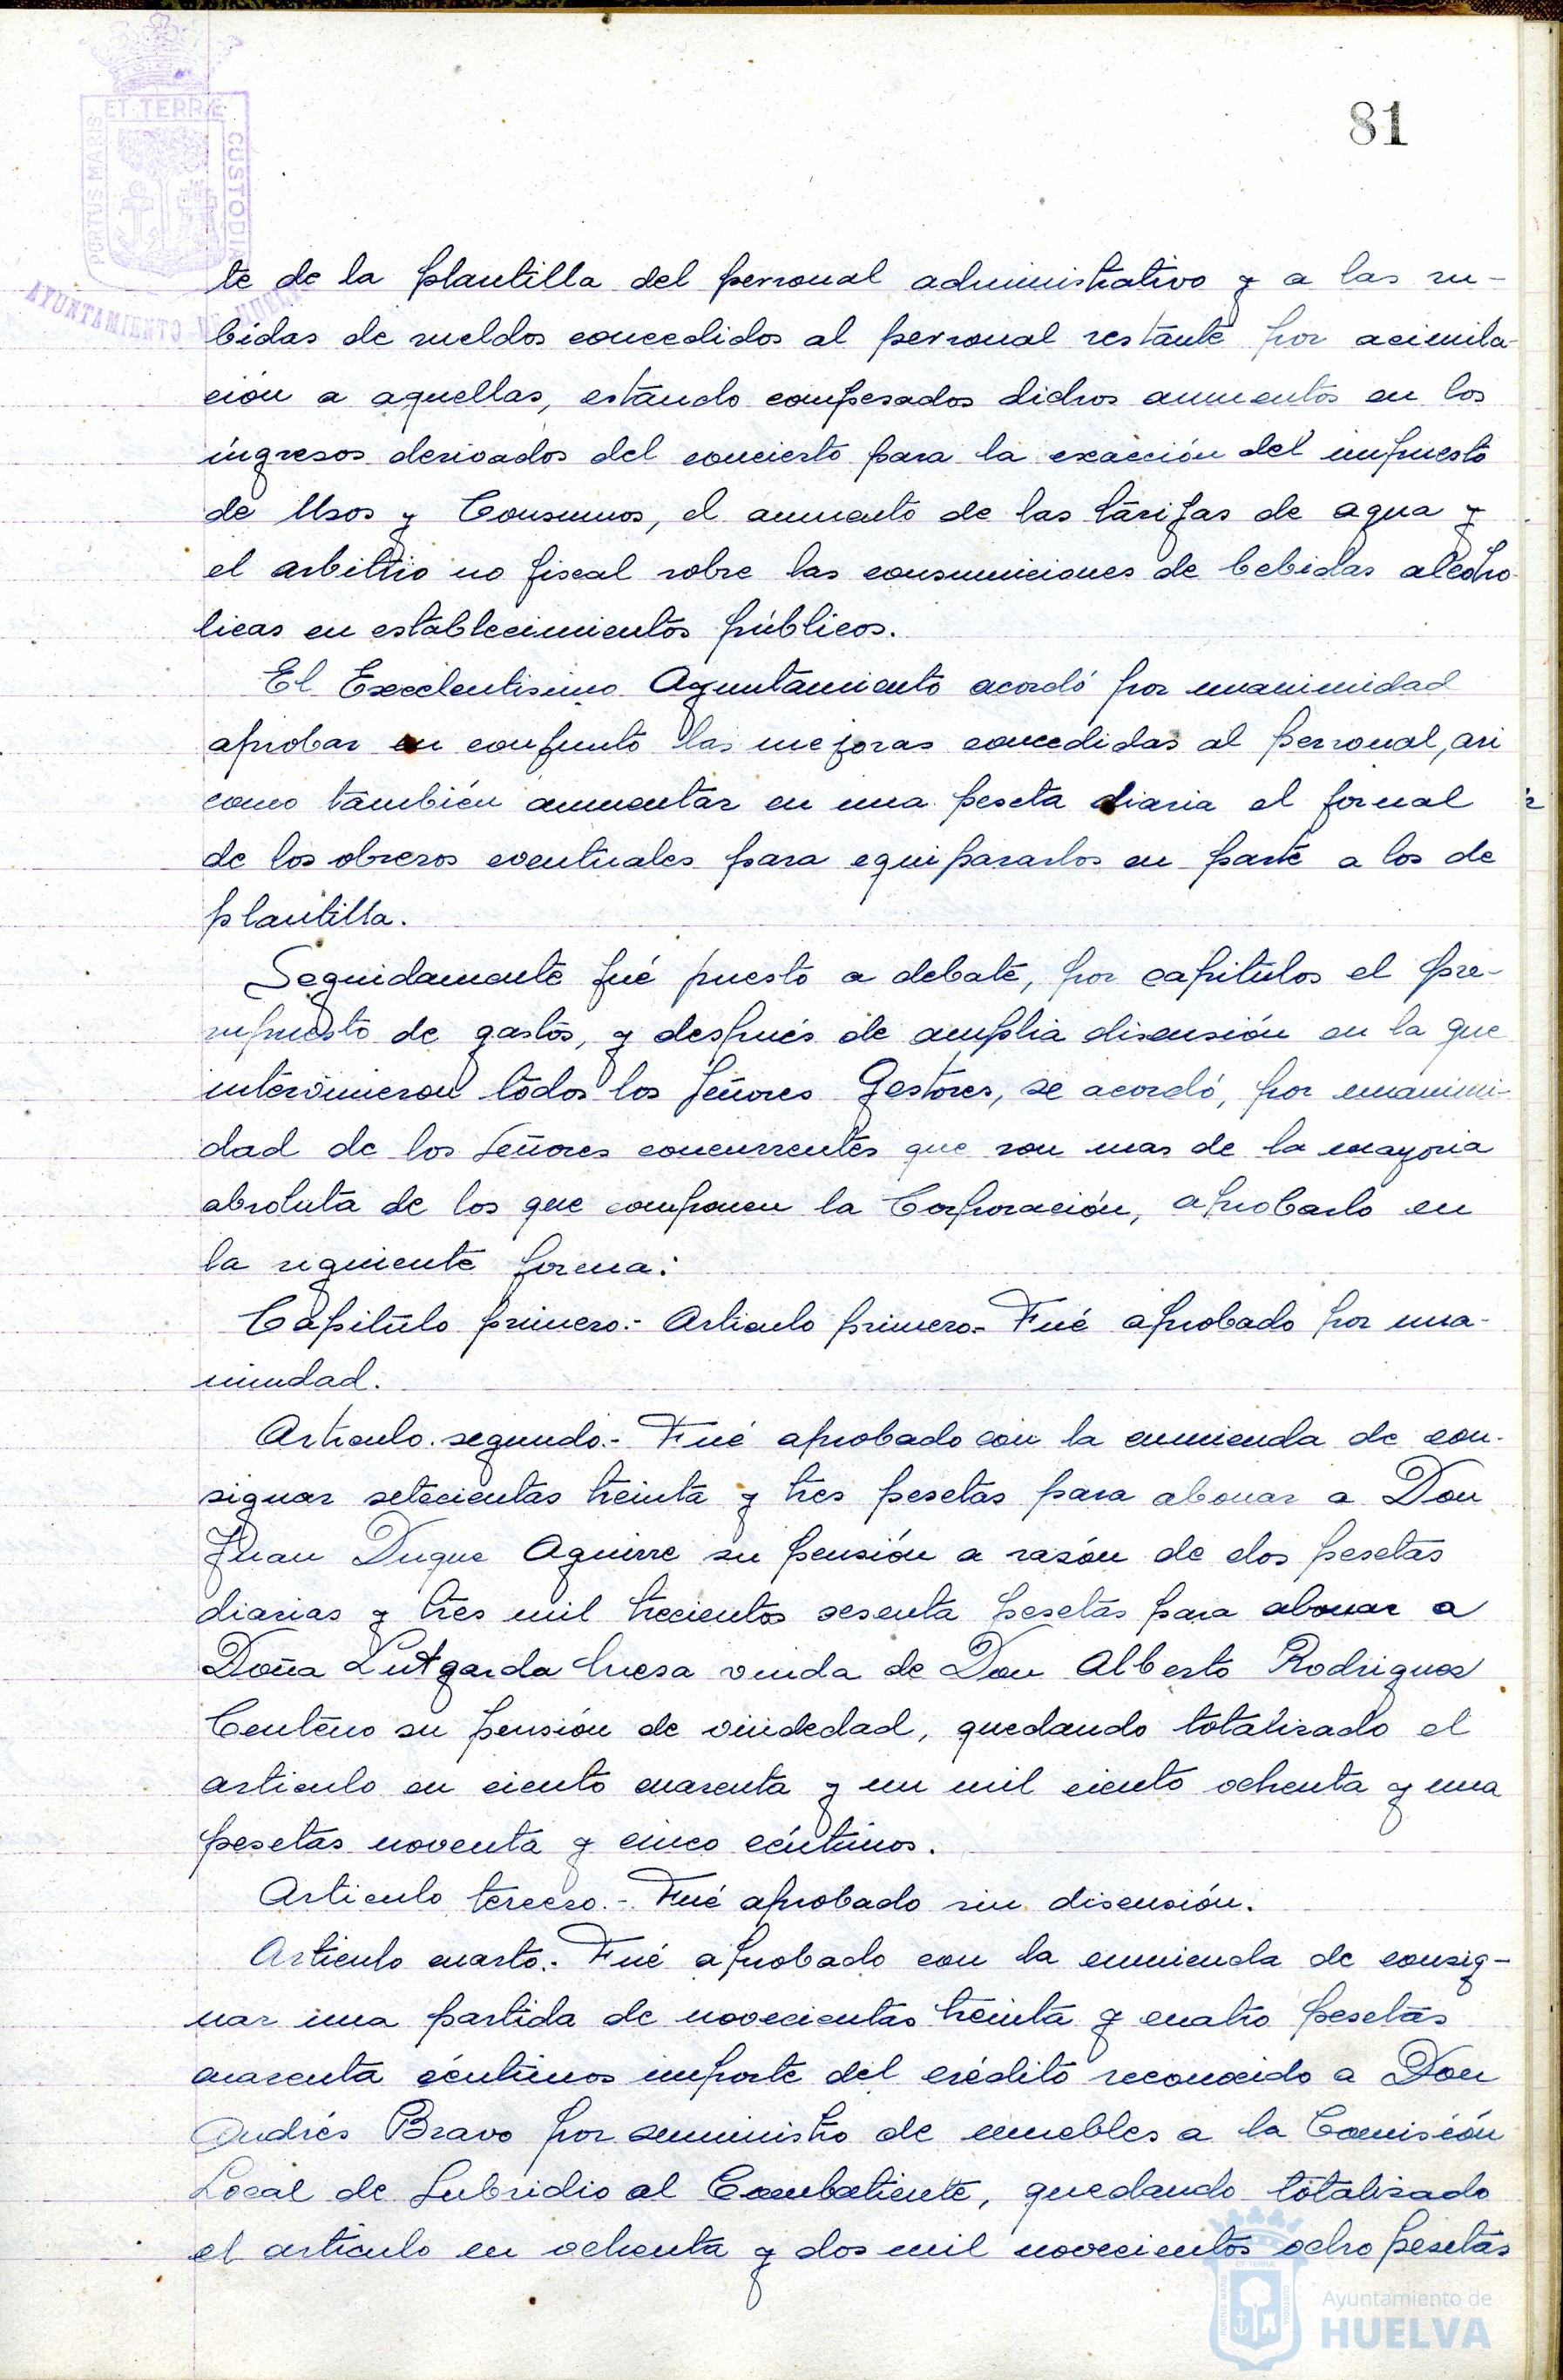 81
PORTUS MARIS ET TERRÆ CUSTODIA
AYUNTAMIENTO DE HUELVA
te de la plantilla del personal administrativo y a las su-
bidas de sueldos concedidos al personal restante por acimila-
ción a aquellas, estando compesados dichos aumentos en los
ingresos derivados del concierto para la exacción del impuesto
de Usos y Consumos, el aumento de las tarifas de agua y
el arbitrio no fiscal sobre las consumiciones de bebidas alcoho-
licas en establecimientos públicos.
El Excelentisimo Ayuntamiento acordó por unanimidad
aprobar en conjunto las mejoras concedidas al personal, asi
como también aumentar en una peseta diaria el jornal
de los obreros eventuales para equipararlos en parte a los de
plantilla.
Seguidamente fué puesto a debate, por capitulos el pre-
supuesto de gastos, y después de amplia discusión en la que
intervinieron todos los Señores Gestores, se acordó, por unanimi-
dad de los Señores concurrentes que son mas de la mayoria
absoluta de los que componen la Corporación, aprobarlo en
la siguiente forma:
Capitulo primero.- Articulo primero.- Fué aprobado por una-
nimidad.
Articulo segundo.- Fué aprobado con la enmienda de con-
signar setecientas treinta y tres pesetas para abonar a Don
Juan Duque Aguirre su pensión a razón de dos pesetas
diarias y tres mil trecientos sesenta pesetas para abonar a
Doña Lutgarda Inesa viuda de Don Alberto Rodriguez
Centeno su pensión de viudedad, quedando totalizado el
articulo en ciento cuarenta y un mil ciento ochenta y una
pesetas noventa y cinco céntimos.
Articulo tercero.- Fué aprobado sin discusión.
Articulo cuarto.- Fué aprobado con la enmienda de consig-
nar una partida de novecientas treinta y cuatro pesetas
cuarenta céntimos importe del crédito reconocido a Don
Andrés Bravo por suministro de muebles a la Comisión
Local de Subsidio al Combatiente, quedando totalizado
el articulo en ochenta y dos mil novecientos ocho pesetas
Ayuntamiento de
HUELVA